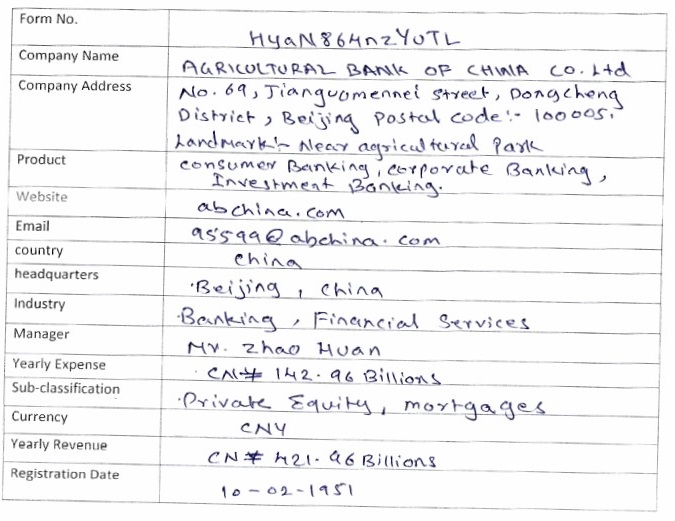 Form No. HyaN864nzYUTL
Company Name AGRICULTURAL BANK OF CHINA CO. Ltd
Company Address No. 69, Jianguomennei Street, Dongcheng
District, Beijing Postal code:- 100005.
Landmark:- Near agricultural Park
Product consumer Banking, corporate Banking,
Investment Banking.
Website abchina.com
Email 95599@abchina.com
country China
headquarters Beijing, China
Industry Banking, Financial Services
Manager Mr. Zhao Huan
Yearly Expense CN¥ 142.96 Billions
Sub-classification Private Equity, mortgages
Currency CNY
Yearly Revenue CN¥ 421.96 Billions
Registration Date 10-02-1951